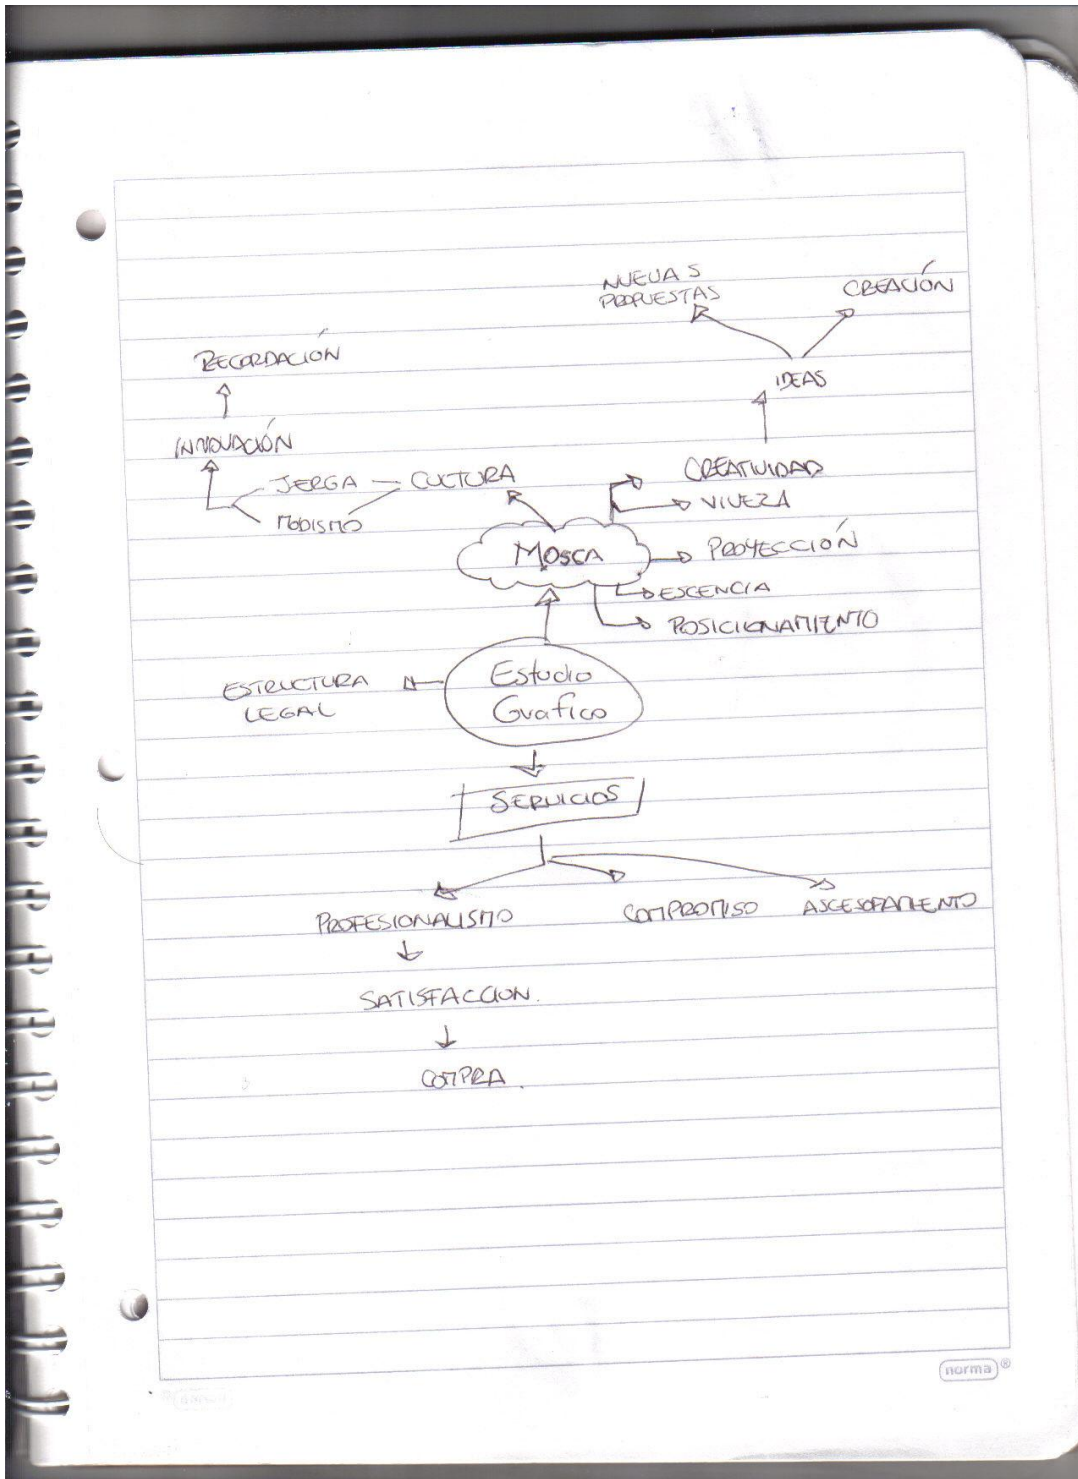 NUEVAS
PROPUESTAS
CREACIÓN
RECORDACIÓN
IDEAS
INNOVACIÓN
CREATIVIDAD
JERGA
CULTURA
VIVEZA
MODISMO
MOSCA
PROYECCIÓN
ESCENCIA
POSICIONAMIENTO
ESTRUCTURA
LEGAL
Estudio
Grafico
SERVICIOS
PROFESIONALISMO
COMPROMISO
ASCESORAMIENTO
SATISFACCION.
COMPRA.
norma®